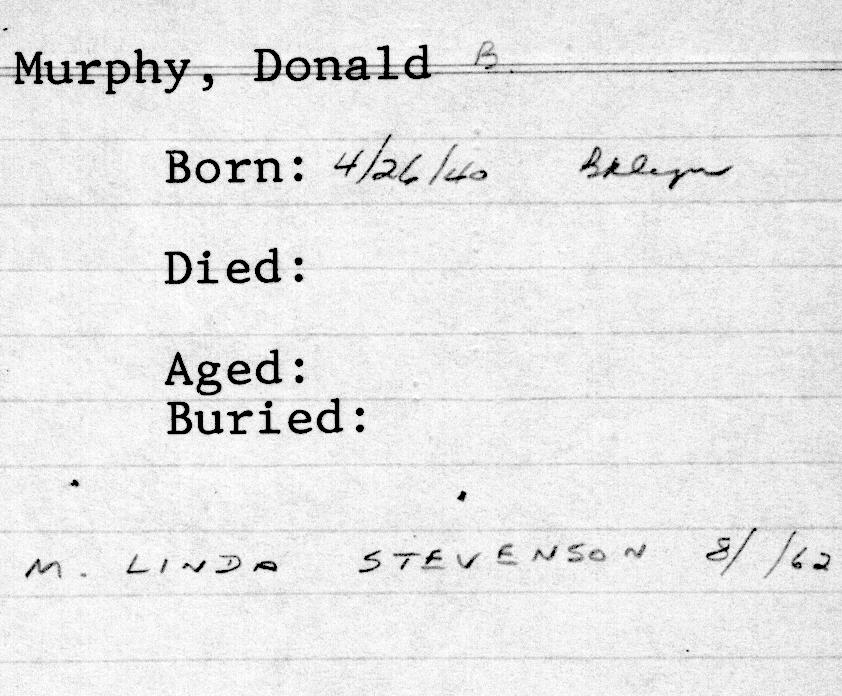 Murphy, Donald B.
Born: 4/26/40 Bklyn
Died:
Aged:
Buried:
M. LINDA STEVENSON 8/ /62